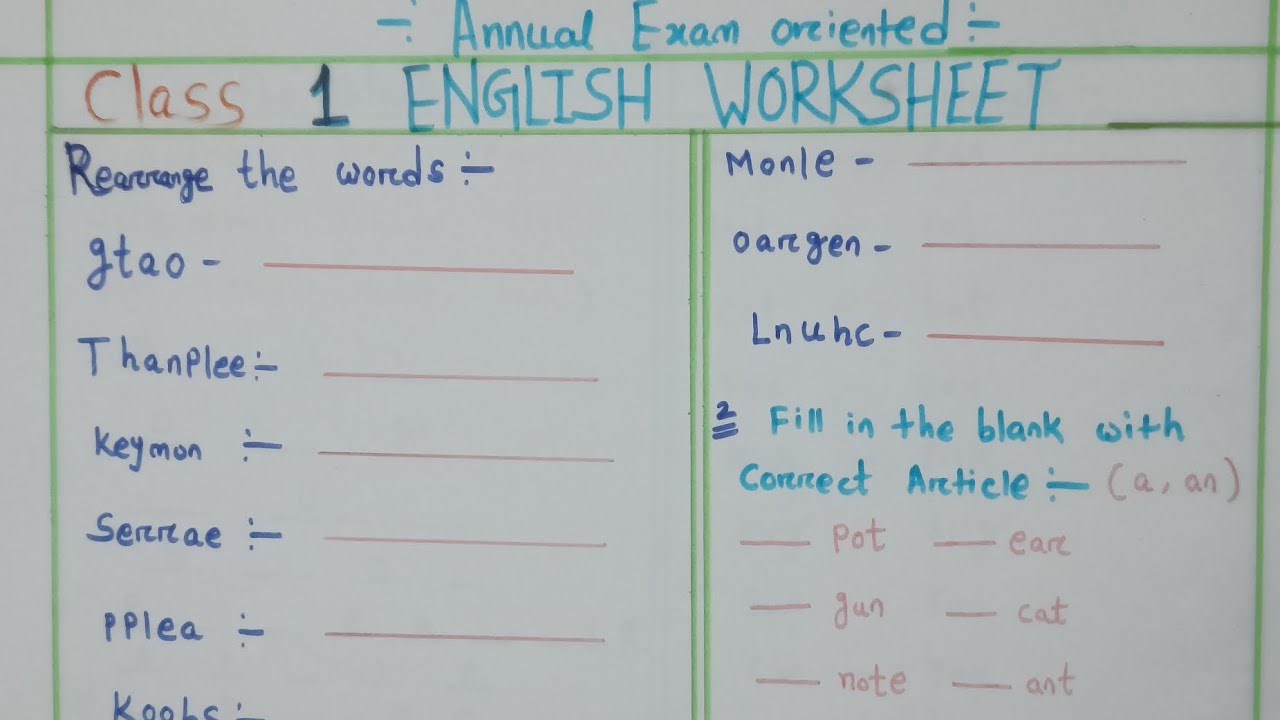 ÷ Annual Exam oriented ÷
Class 1 ENGLISH WORKSHEET
Rearrange the words :-
gtao -
Thanplee :-
Keymon :-
Serrae :-
pplea :-
Koobs :-
Monle -
oargen -
Lnuhc -
2 Fill in the blank with
Correct Article :- (a, an)
pot ear
gun cat
note ant